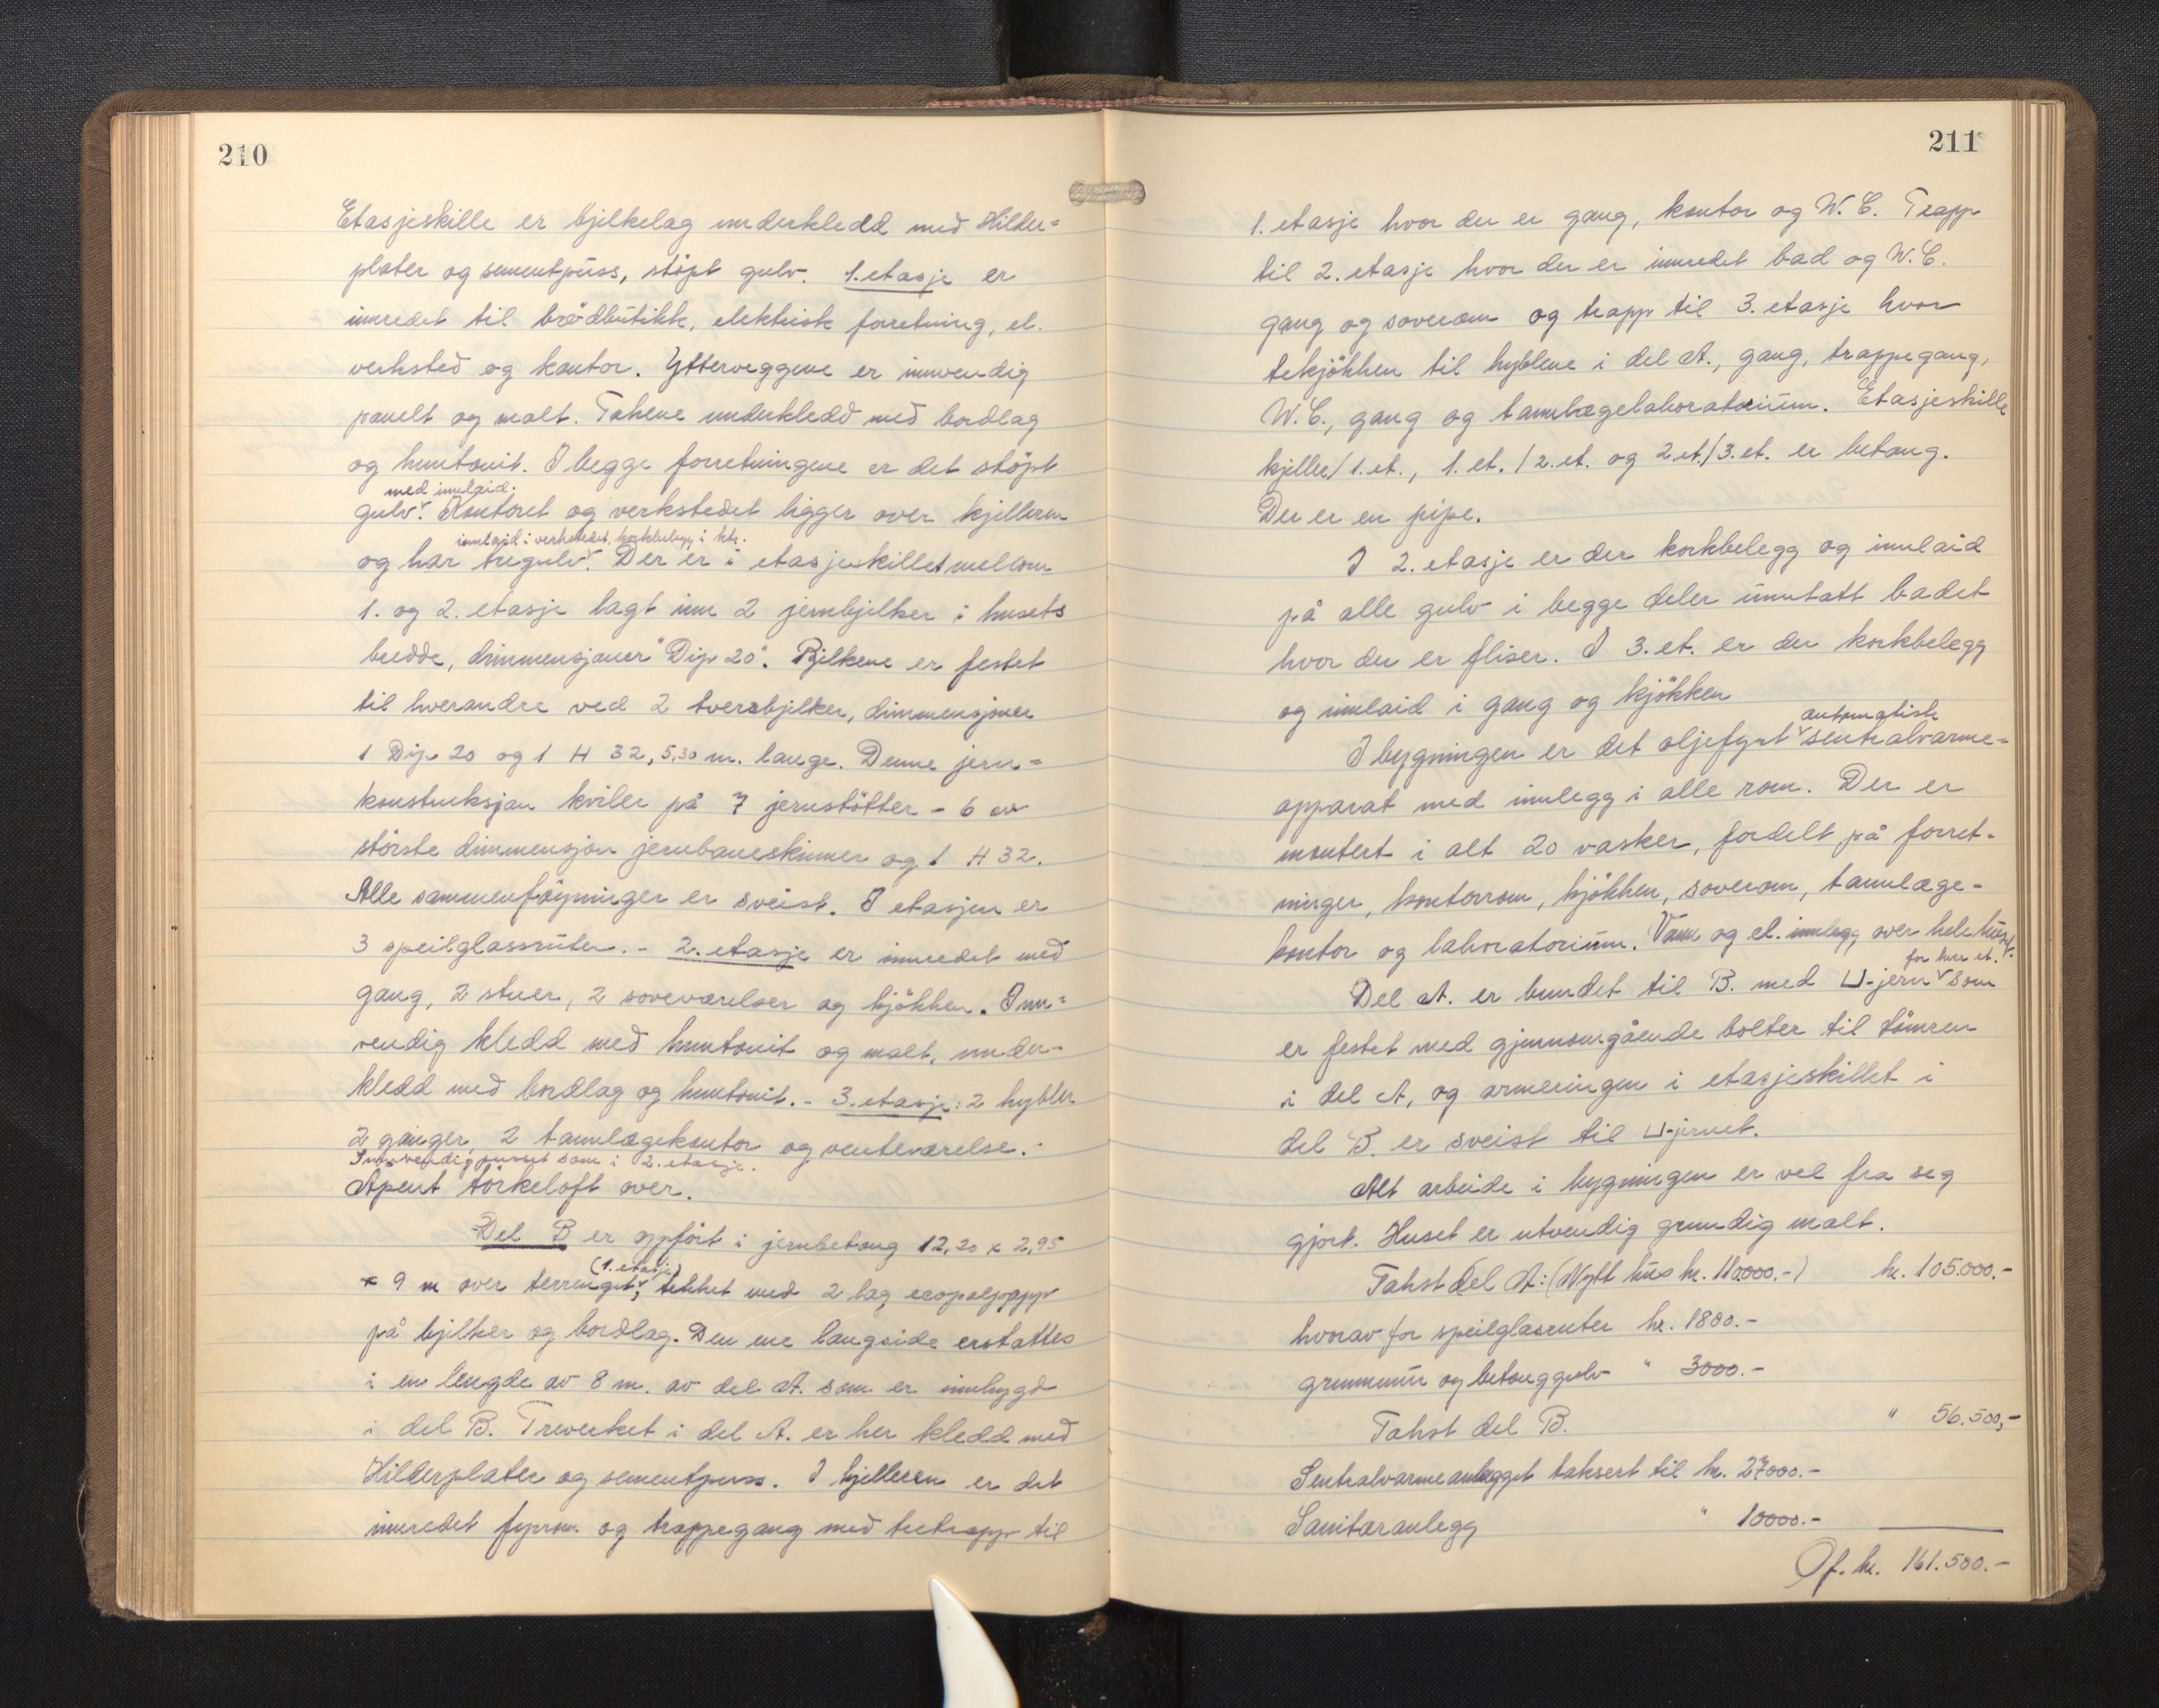 210
Etasjeskille er bjelkelag underkledd med Hilder=
plater og sementpuss, støpt gulv. 1. etasje er
innredet til brødbutikk, elektrisk forretning, el.
verksted og kontor. Ytterveggene er innvendig
panelt og malt. Takene underkledd med bordlag
og huntonit. I begge forretningene er det støpt
med innlaid.
gulv. Kontoret og verkstedet ligger over kjelleren
innlaid i verkstedet, korkbelegg i ktr.
og har tregulv. Der er i etasjeskillet mellom
1. og 2. etasje lagt inn 2 jernbjelker i husets
bredde, dimmensjoner "Dip 20". Bjelkene er festet
til hverandre ved 2 tversbjelker, dimmensjoner
1 Dip 20 og 1 H 32, 5,30 m. lange. Denne jern=
konstruksjon kviler på 7 jernstötter - 6 av
störste dimmensjon jernbaneskinner og 1 H 32.
Alle sammenföyninger er sveist. I etasjen er
3 speilglassruter. - 2. etasje er innredet med
gang, 2 stuer, 2 soveværelser og kjökken. Inn=
vendig kledd med huntonit og malt, under-
kledd med bordlag og huntonit. - 3. etasje: 2 hybler
2 ganger, 2 tannlægekontor og venteværelse. -
Innvendig pusset som i 2. etasje.
Apent törkeloft over.
Del B er oppfört i jernbetong 12,20 x 2,95
(1. etasje)
x 9 m over terrenget, tekket med 2 lag ecopalpapp
på bjelker og bordlag. Den ene langside erstattes
i en lengde av 8 m. av del A. som er innbygd
i del B. Treverket i del A. er her kledd med
Hilderplater og sementpuss. I kjelleren er det
innredet fyrrom og trappegang med tretrapp til
211
1. etasje hvor der er gang, kontor og W.C. Trapp
til 2. etasje hvor der er innredet bad og W.C.
gang og soverom og trapp til 3. etasje hvor
tekjökken til hyblene i del A., gang, trappegang,
W.C., gang og tannlægelaboratorium. Etasjeskille
kjeller/1. et., 1. et./2. et. og 2 et./3. et. er betong.
Der er en pipe.
I 2. etasje er der korkbelegg og innlaid
på alle gulv i begge deler unntatt badet
hvor der er fliser. I 3. et. er der korkbelegg
og innlaid i gang og kjökken
automatisk
I bygningen er det oljefyrt sentralvarme=
apparat med innlegg i alle rom. Der er
montert i alt 20 vasker, fordelt på forret-
ninger, kontorrom, kjökken, soverom, tannlæge-
kontor og laboratorium. Vann og el. innlegg over hele huset.
for hver et.
Del A. er bundet til B. med ⊔-jern som
er festet med gjennomgående bolter til tömren
i del A, og armeringen i etasjeskillet i
del B. er sveist til ⊔-jernet.
Alt arbeide i bygningen er vel fra seg
gjort. Huset er utvendig grundig malt.
Takst del A: (Nytt hus kr. 110.000.-) kr. 105.000.-
hvorav for speilglasruter kr. 1800.-
grunnmur og betonggulv " 3000.-
Takst del B. " 56.500,-
Sentralvarmeanlegget taksert til kr. 27000.-
Sanitæranlegg " 10000.-
Of. kr. 161.500.-